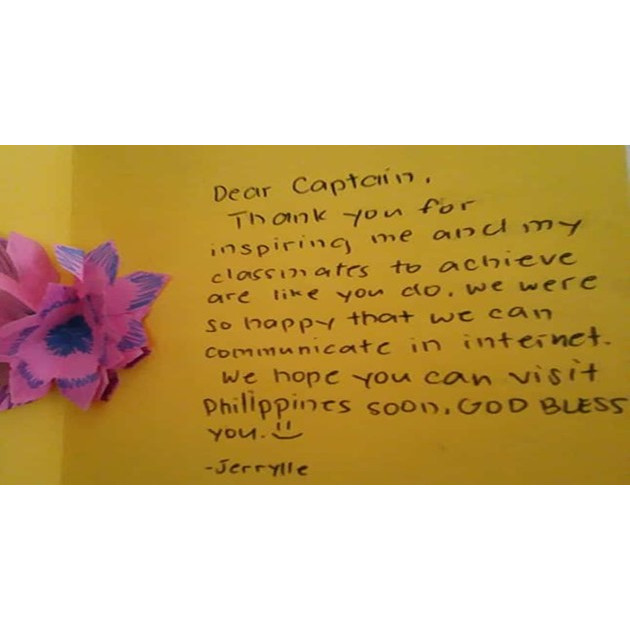 Dear Captain,
Thank you for
inspiring me and my
classmates to achieve
are like you do. We were
so happy that we can
communicate in internet.
We hope you can visit
Philippines soon. GOD BLESS
you. :)
-Jerrylle